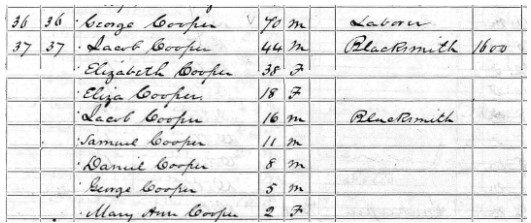 36 36 George Cooper 70 m Laborer
37 37 Jacob Cooper 44 m Blacksmith 1600
Elizabeth Cooper 38 F
Eliza Cooper 18 F
Jacob Cooper 16 m Blacksmith
Samuel Cooper 11 m
Daniel Cooper 8 m
George Cooper 5 m
Mary Ann Cooper 2 F